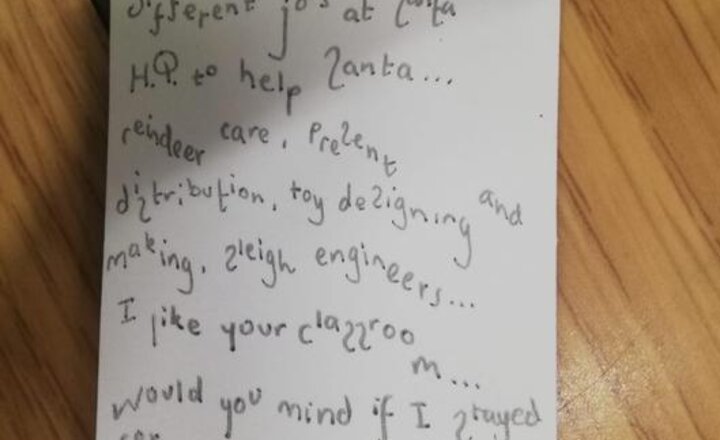 different jobs at Santa
H.Q. to help Santa...
reindeer care, present
distribution, toy designing and
making, sleigh engineers...
I like your classroo
m...
Would you mind if I stayed